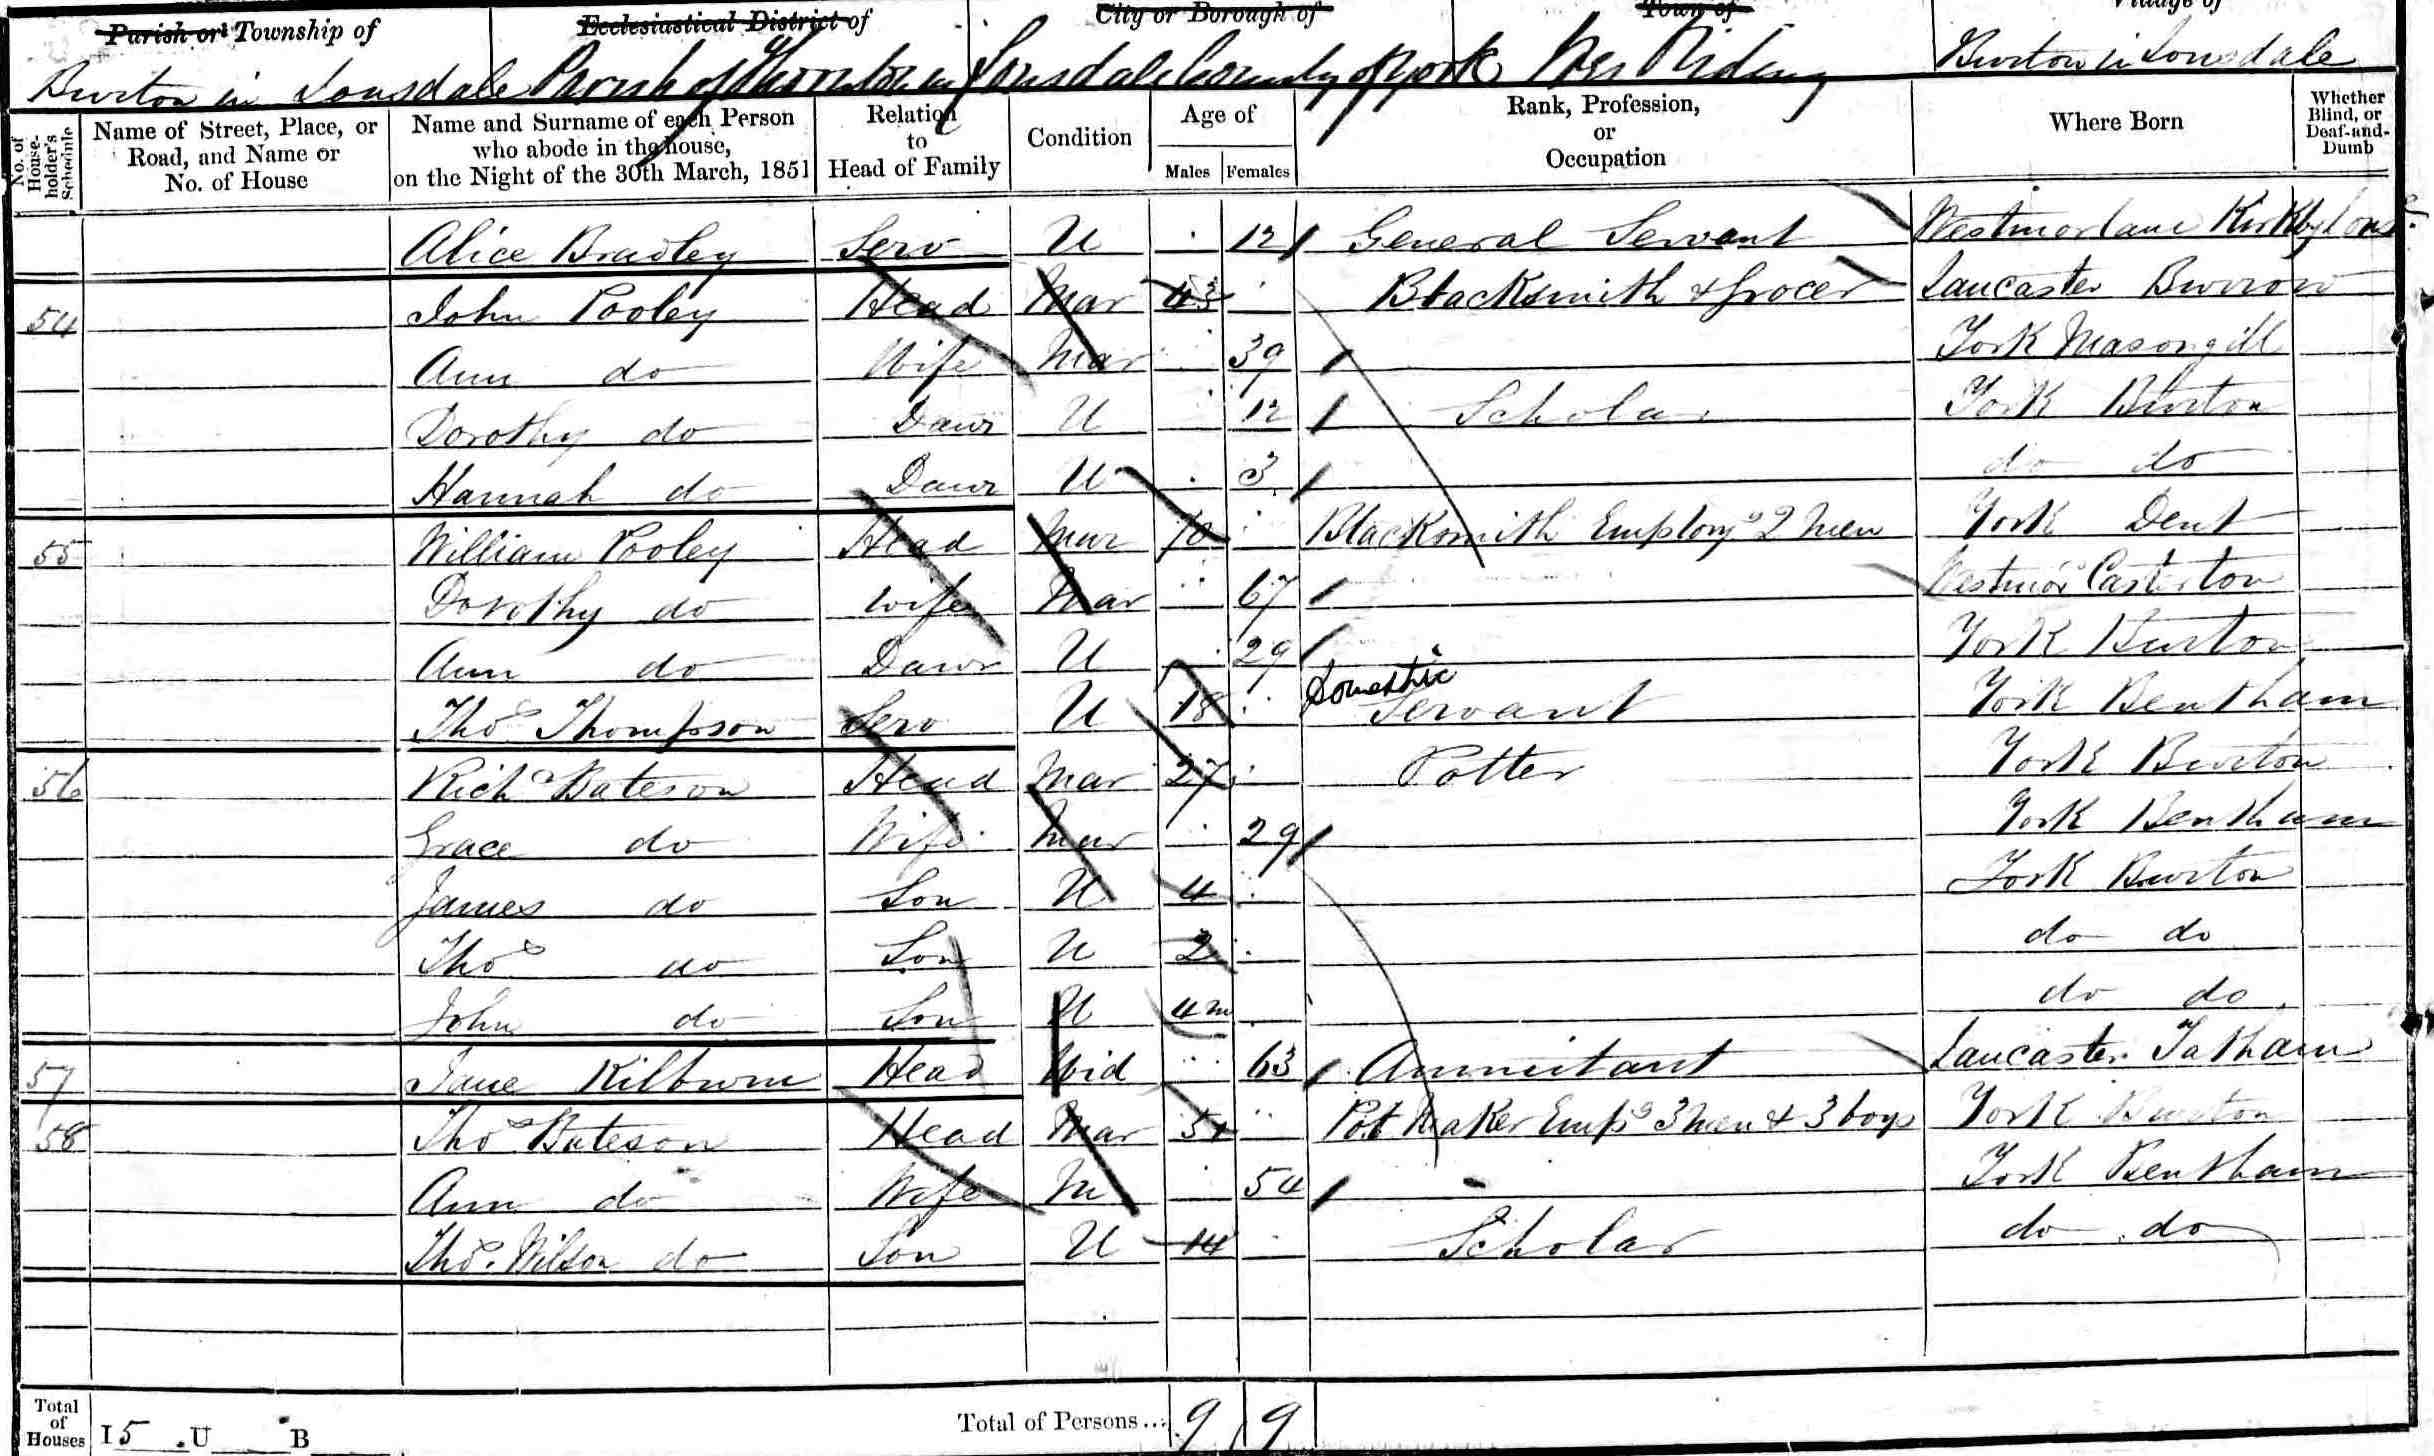 Parish or Township of Ecclesiastical District of City or Borough of Town of Village of
Burton in Lonsdale Parish of Thornton in Lonsdale County of York Wes Riding Burton in Lonsdale
No. of House-holder's Schedule
Name of Street, Place, or Road, and Name or No. of House
Name and Surname of each Person who abode in the house, on the Night of the 30th March, 1851
Relation to Head of Family
Condition
Age of
Males Females
Rank, Profession, or Occupation
Where Born
Whether Blind, or Deaf-and-Dumb
Alice Bradley Serv U 12 General Servant Westmorland Kirkby Lons
54 John Pooley Head Mar 43 Blacksmith & Grocer Lancaster Burrow
Ann do Wife Mar 39 York Masongill
Dorothy do Dawr U 12 Scholar York Burton
Hannah do Dawr U 3 do do
55 William Pooley Head Mar 70 Blacksmith Employg 2 Men York Dent
Dorothy do Wife Mar 67 Westmor Casterton
Ann do Dawr U 29 York Burton
Thos Thompson Serv U 18 Domestic Servant York Bentham
56 Richd Bateson Head Mar 27 Potter York Burton
Grace do Wife Mar 29 York Bentham
James do Son U 4 York Burton
Thos do Son U 2 do do
John do Son U 4m do do
57 Jane Kilburn Head Wid 63 Annuitant Lancaster Tatham
58 Thos Bateson Head Mar Pot Maker Empg 3 men & 3 boys York Burton
Ann do Wife M 54 York Bentham
Thos. Wilson do Son U 14 Scholar do do
Total of Houses I 5 U B Total of Persons... 9 9